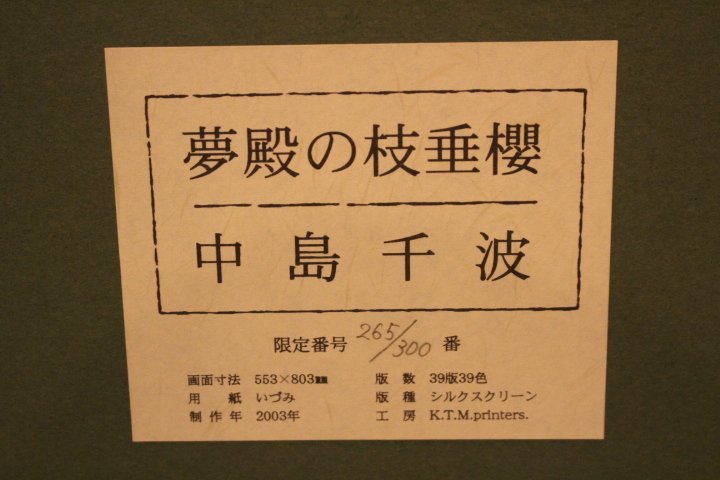 夢殿の枝垂櫻
中島千波
限定番号 265/300 番
画面寸法 553×803㎜ 版数 39版39色
用紙 いづみ 版種 シルクスクリーン
制作年 2003年 工房 K.T.M.printers.